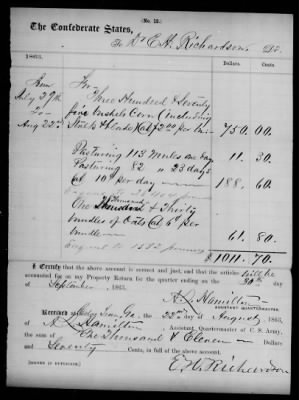 (No. 12.)
The Confederate States,
To Dr E. H. Richardson, Dr.
1863. Dollars. Cents.
From For
July 29th Three Hundred & Seventy
To five bushels Corn (including
Aug 22nd Stalk & blade) (at $2.00 per bu. 750. 00.
Pasturing 113 mules one day 11. 30
Pasturing 82 " 23 days
at 10¢ per day 188. 60
One Thousand & Thirty
bundles of Oats (at 6¢ per
bundle 61. 80
$1011. 70
I Certify that the above account is correct and just, and that the articles will be
accounted for on my Property Return for the quarter ending on the 30th day
of September, 1863.
A. L. Hamilton
ASSISTANT QUARTERMASTER.
Received Ga. the 22nd day of August 1863,
of A. L. Hamilton, Assistant Quartermaster C. S. Army,
the sum of One Thousand & Eleven Dollars
and Seventy Cents, in full of the above account.
[SIGNED IN DUPLICATE.] E. H. Richardson